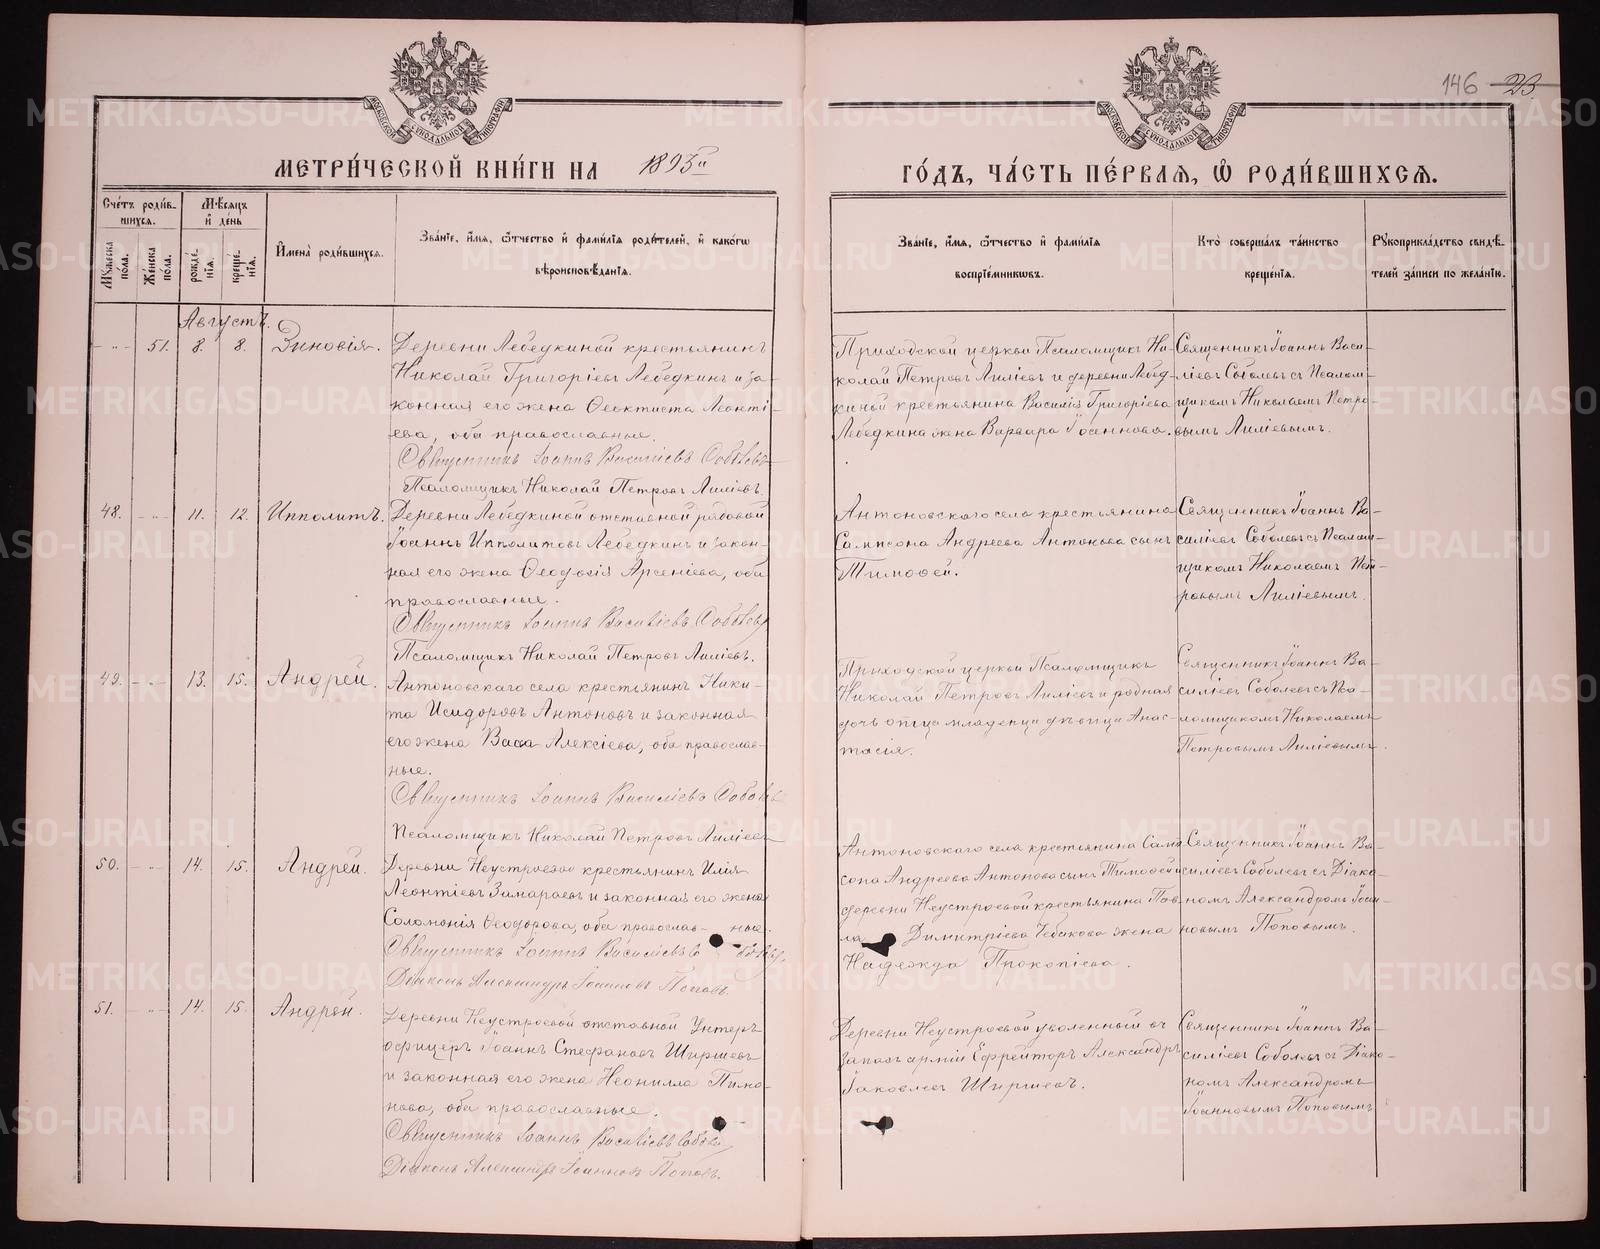 146 23
МОСКОВСКОЙ СѴНОДАЛЬНОЙ ТИПОГРАФІИ
МОСКОВСКОЙ СѴНОДАЛЬНОЙ ТИПОГРАФІИ
МЕТРИ́ЧЕСКОЙ КНИ́ГИ НА 1893й ГО́ДЪ, ЧА́СТЬ ПЕ́РВАЯ, Ѽ РОДИ́ВШИХСЯ.
Сче́тъ роди́в-
шихся.
Мꙋ́жеска по́ла.
Же́нска по́ла.
Мѣ́сяцъ
и҆ де́нь
рожде́-
нїя.
креще́-
нїя.
И҆мена̀ роди́вшихся.
Зва́нїе, и҆́мя, ѻ҆́тчество и҆ фами́лїя роди́телей, и҆ како́гѡ
вѣроисповѣ́данїя.
Зва́нїе, и҆́мя, ѻ҆́тчество и҆ фами́лїя
воспрїе́мникѡвъ.
Кто̀ соверша́лъ та́инство
креще́нїя.
Рꙋкоприкла́дство свидѣ́-
телей за́писи по жела́нїю.
Августъ.
- „ - 51. 8. 8. Зиновія.
Деревни Лебедкиной крестьянинъ
Николай Григоріевъ Лебедкинъ и за-
конная его жена Ѳеоктиста Леонті-
ева, оба православные.
Священникъ Іоаннъ Василіевъ Соболевъ
Псаломщикъ Николай Петровъ Лиліевъ.
Приходской церкви Псаломщикъ Ни-
колай Петровъ Лиліевъ и деревни Лебед-
киной крестьянина Василія Григоріева
Лебедкина жена Варвара
Священникъ Іоаннъ Васи-
ліевъ Соболевъ съ Псалом-
щикомъ Николаемъ Петро-
вымъ Лиліевымъ.
48. - „ - 11. 12. Ипполитъ.
Деревни Лебедкиной отставной рядовой
Іоаннъ Ипполитовъ Лебедкинъ и закон-
ная его жена Ѳеодосія Арсеніева, оба
православные.
Священникъ Іоаннъ Василіевъ Соболевъ
Псаломщикъ Николай Петровъ Лиліевъ.
Антоновскаго села крестьянина
Сампсона Андреева Антонова сынъ
Тимоѳей.
Священникъ Іоаннъ Ва-
силіевъ Соболевъ съ Псалом-
щикомъ Николаемъ Пет-
ровымъ Лиліевымъ.
49. - „ - 13. 15. Андрей.
Антоновскаго села крестьянинъ Ники-
та Исидоровъ Антоновъ и законная
его жена Васса Алексіева, оба православ-
ные.
Священникъ Іоаннъ Василіевъ Соболевъ
Псаломщикъ Николай Петровъ Лиліевъ
Приходской церкви Псаломщикъ
Николай Петровъ Лиліевъ и родная
дочь отца младенца дѣвица Анас-
тасія.
Священникъ Іоаннъ Ва-
силіевъ Соболевъ съ Пса-
ломщикомъ Николаемъ
Петровымъ Лиліевымъ.
50. - „ - 14. 15. Андрей.
Деревни Неустроевой крестьянинъ Илія
Леонтіевъ Замараевъ и законная его жена
Соломонія Ѳеодорова, оба православ- ные.
Священникъ Іоаннъ Василіевъ Соболевъ
Діаконъ Александръ Іоанновъ Поповъ.
Антоновскаго села крестьянина Самп-
сона Андреева Антонова сынъ Тимоѳей и
деревни Неустроевой крестьянина Пав-
ла Димитріева Чебакова жена
Надежда Прокопіева.
Священникъ Іоаннъ Ва-
силіевъ Соболевъ съ Діако-
номъ Александромъ Іоан-
новымъ Поповымъ.
51. - „ - 14. 15. Андрей.
Деревни Неустроевой отставной Унтеръ-
офицеръ Іоаннъ Стефановъ Ширшевъ
и законная его жена Неонилла Пимо-
нова, оба православные.
Священникъ Іоаннъ Василіевъ Соболевъ
Діаконъ Александръ Іоанновъ Поповъ.
Деревни Неустроевой уволенный въ
запасъ арміи Ефрейторъ Александръ
Іаковлевъ Ширшевъ.
Священникъ Іоаннъ Ва-
силіевъ Соболевъ съ Діако-
номъ Александромъ
Іоанновымъ Поповымъ
METRIKI.GASO-URAL.RU